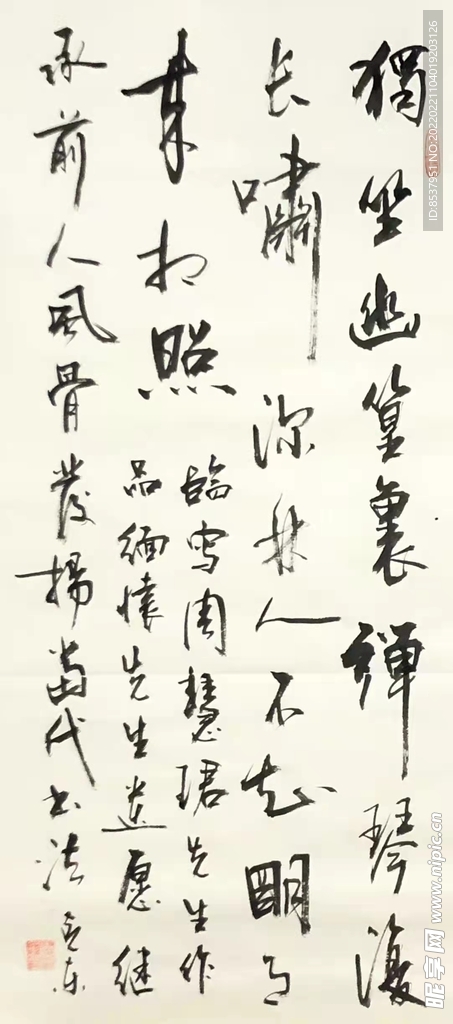 獨坐幽篁裏彈琴復
长嘯深林人不知明月
来相照
臨写周慧珺先生作
品缅懷先生遗愿继
承前人風骨發揚當代书法
ID:8537951 NO:20220221104019203126
昵享网 www.nipic.cn